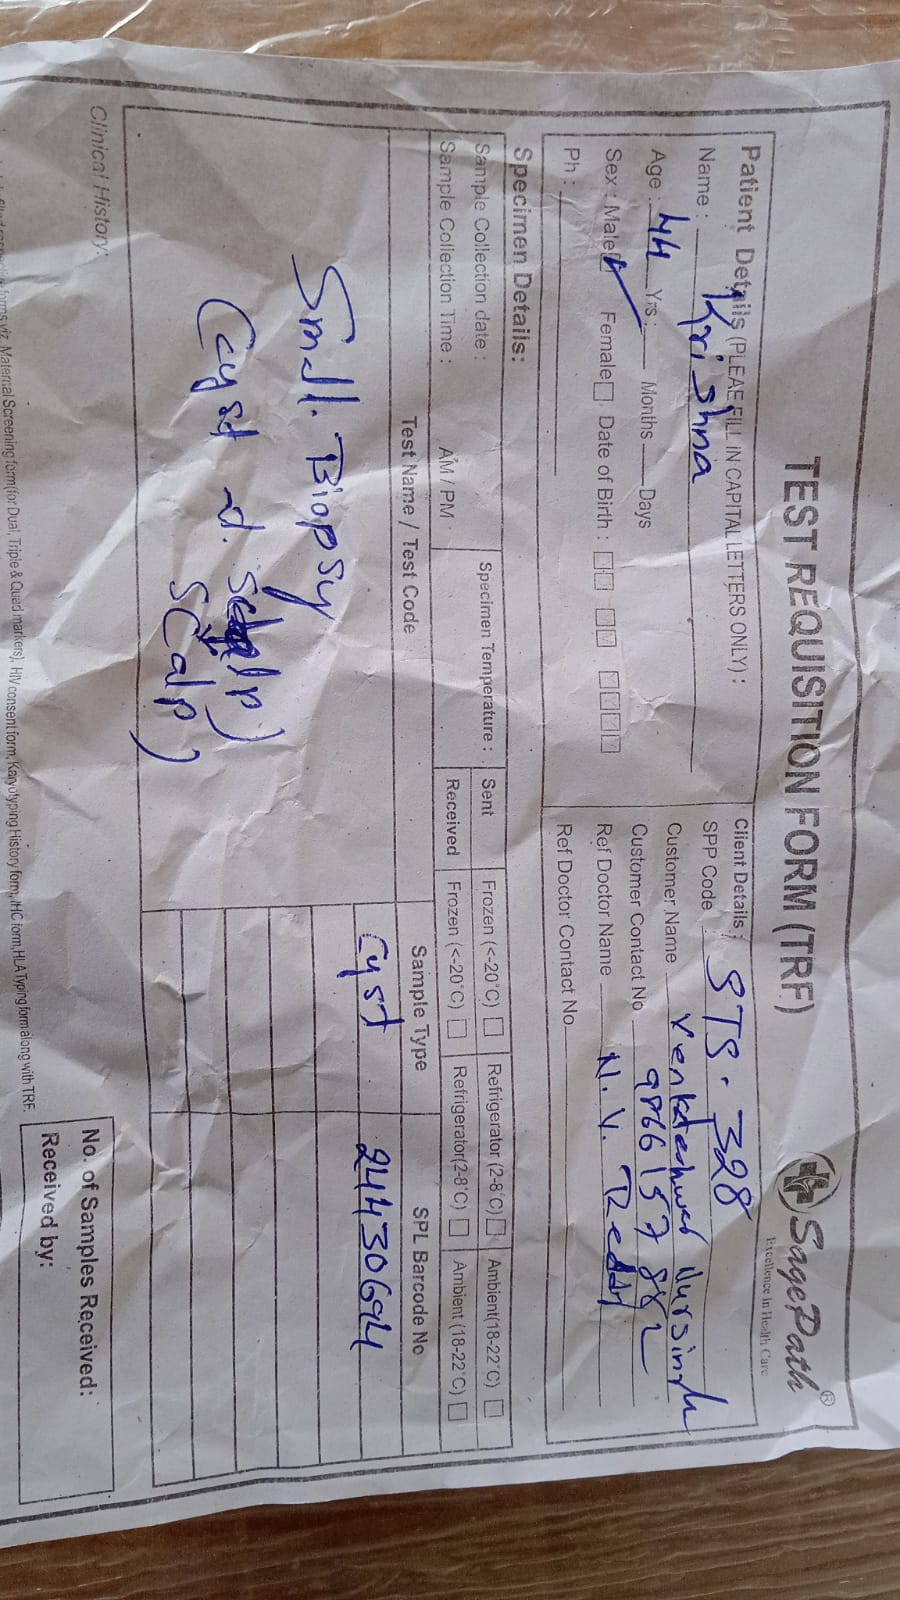 TEST REQUISITION FORM (TRF)
SagePath®
Excellence In Health Care
Patient Details (PLEAE FILL IN CAPITAL LETTERS ONLY) :
Name : Krishna
Age : 44 Yrs : Months Days
Sex : Male Female Date of Birth :
Ph :
Client Details :
SPP Code STS. 328
Customer Name Venkateshwar Nursingh
Customer Contact No 9866157882
Ref Doctor Name N. V. Reddy
Ref Doctor Contact No
Specimen Details:
Sample Collection date :
Sample Collection Time : AM / PM
Specimen Temperature :
Sent Frozen (<-20°C) Refrigerator (2-8°C) Ambient(18-22°C)
Received Frozen (<-20°C) Refrigerator(2-8°C) Ambient (18-22°C)
Test Name / Test Code Sample Type SPL Barcode No
Small. Biopsy Cyst 24430694
(cyst
scalp)
Clinical History:
No. of Samples Received:
Received by:
forms viz. Maternal Screening form(for Dual, Triple & Quad markers), HIV consent form, Karyotyping History form, IHC form, HLA Typing form along with TRF.